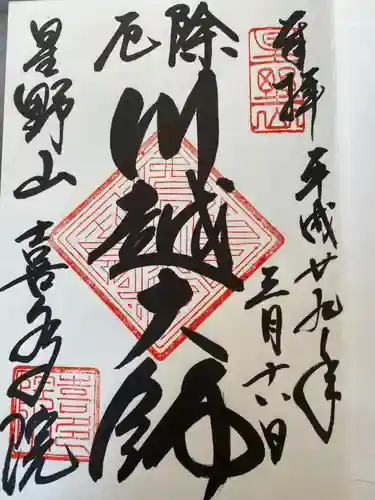 奉拝
平成廿九年
三月十六日
厄除
川越大師
星野山
喜多院